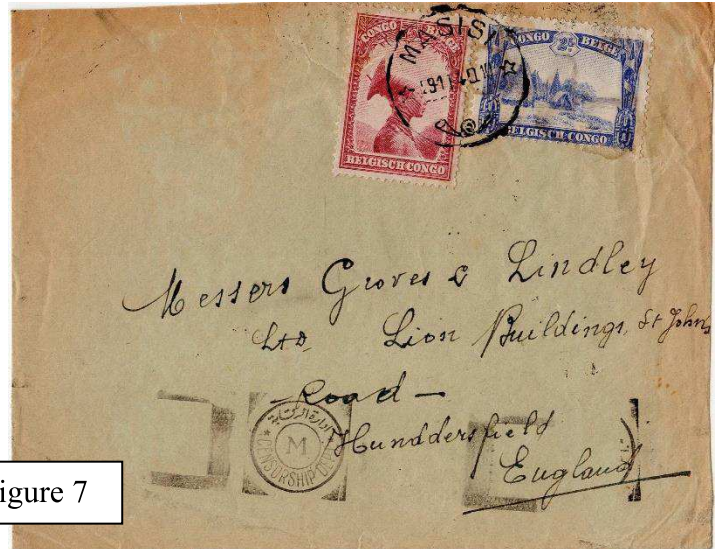 CONGO BELGE
BELGISCH CONGO
MASISI
CONGO BELGE
BELGISCH CONGO
Messers Groves & Lindley
Ltd Lion Buildings, St Johns
Road
Hunddersfield
England
ادارة الرقابة
CENSORSHIP DEPT
M
igure 7